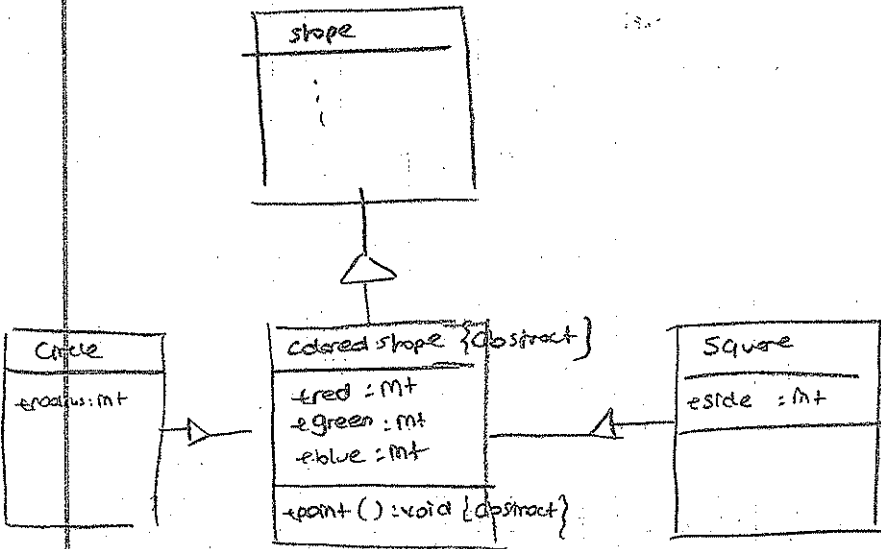 shape
Circle
+radius: int
colored shape {abstract}
+red : int
+green : int
+blue : int
+paint () : void {abstract}
Square
+side : int